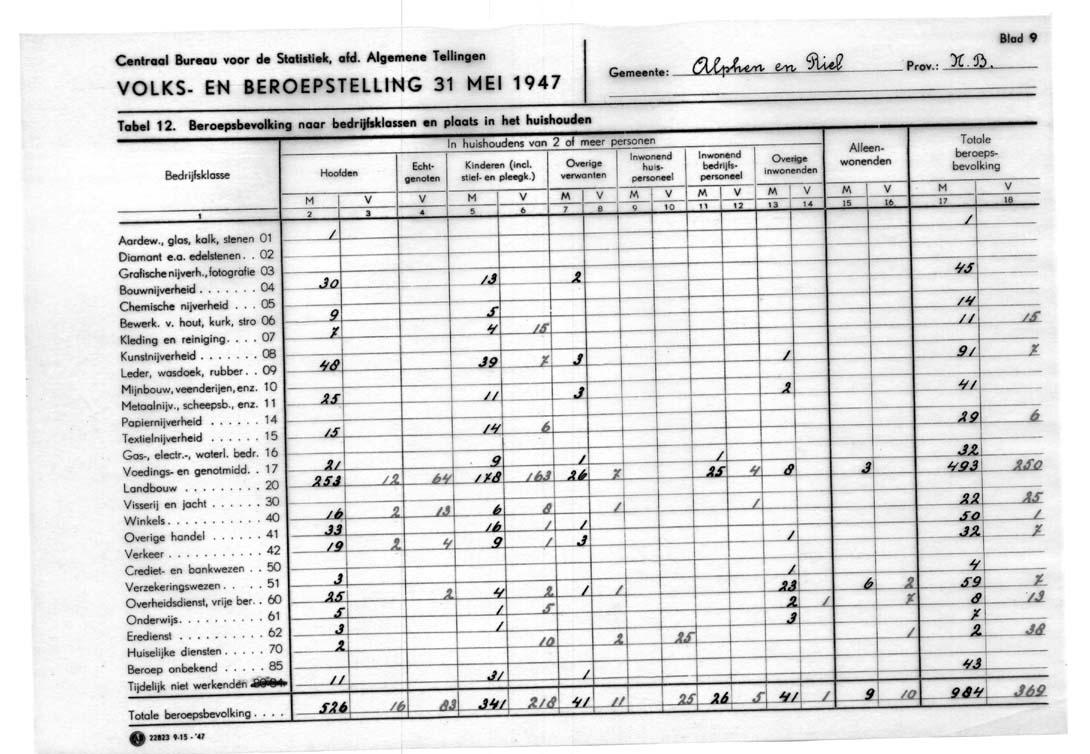 Blad 9
Centraal Bureau voor de Statistiek, afd. Algemene Tellingen
VOLKS- EN BEROEPSTELLING 31 MEI 1947
Gemeente: Alphen en Riel Prov.: N.B.
Tabel 12. Beroepsbevolking naar bedrijfsklassen en plaats in het huishouden
In huishoudens van 2 of meer personen
Bedrijfsklasse
Hoofden
Echt-
genoten
Kinderen (incl.
stief- en pleegk.)
Overige
verwanten
Inwonend
huis-
personeel
Inwonend
bedrijfs-
personeel
Overige
inwonenden
Alleen-
wonenden
Totale
beroeps-
bevolking
M V V M V M V M V M V M V M V M V
1 2 3 4 5 6 7 8 9 10 11 12 13 14 15 16 17 18
Aardew., glas, kalk, stenen 01 1 1
Diamant e.a. edelstenen . . 02
Grafische nijverh., fotografie 03
Bouwnijverheid . . . . . . . 04 30 13 2 45
Chemische nijverheid . . . 05
Bewerk. v. hout, kurk, stro 06 9 5 14
Kleding en reiniging. . . . 07 7 4 15 11 15
Kunstnijverheid . . . . . . . 08
Leder, wasdoek, rubber. . 09 48 39 7 3 1 91 7
Mijnbouw, veenderijen, enz. 10
Metaalnijv., scheepsb., enz. 11 25 11 3 2 41
Papiernijverheid . . . . . . 14
Textielnijverheid . . . . . . 15 15 14 6 29 6
Gas-, electr.-, waterl. bedr. 16
Voedings- en genotmidd. . 17 21 9 1 1 32
Landbouw . . . . . . . . . 20 253 12 64 178 163 26 7 25 4 8 3 493 250
Visserij en jacht . . . . . . 30
Winkels . . . . . . . . . . . 40 16 2 13 6 8 1 1 22 25
Overige handel . . . . . . 41 33 16 1 1 50 1
Verkeer . . . . . . . . . . . 42 19 2 4 9 1 3 1 32 7
Crediet- en bankwezen . . 50
Verzekeringswezen . . . . . 51 3 1 4
Overheidsdienst, vrije ber. . 60 25 2 4 2 1 1 23 6 2 59 7
Onderwijs. . . . . . . . . . 61 5 1 5 2 1 7 8 13
Eredienst . . . . . . . . . . 62 3 1 3 7
Huiselijke diensten . . . . . 70 2 10 2 25 1 2 38
Beroep onbekend . . . . . 85
Tijdelijk niet werkenden 80-84 11 31 1 43
Totale beroepsbevolking. . . . 526 16 83 341 218 41 11 25 26 5 41 1 9 10 984 369
22823 9-15 - '47